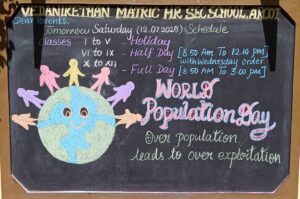 VEDANIKETHAN MATRIC HR. SEC. SCHOOL,
Dear Parents,
Tomorrow Saturday (12.07.2025) Schedule
Classes I to V - Holiday
VI to IX - Half Day [8.50 Am To 12.10 pm]
with Wednesday order
X to XII - Full Day [8.50 Am To 3.00 pm]
WORLD
Population Day
Over population
leads to over exploitation